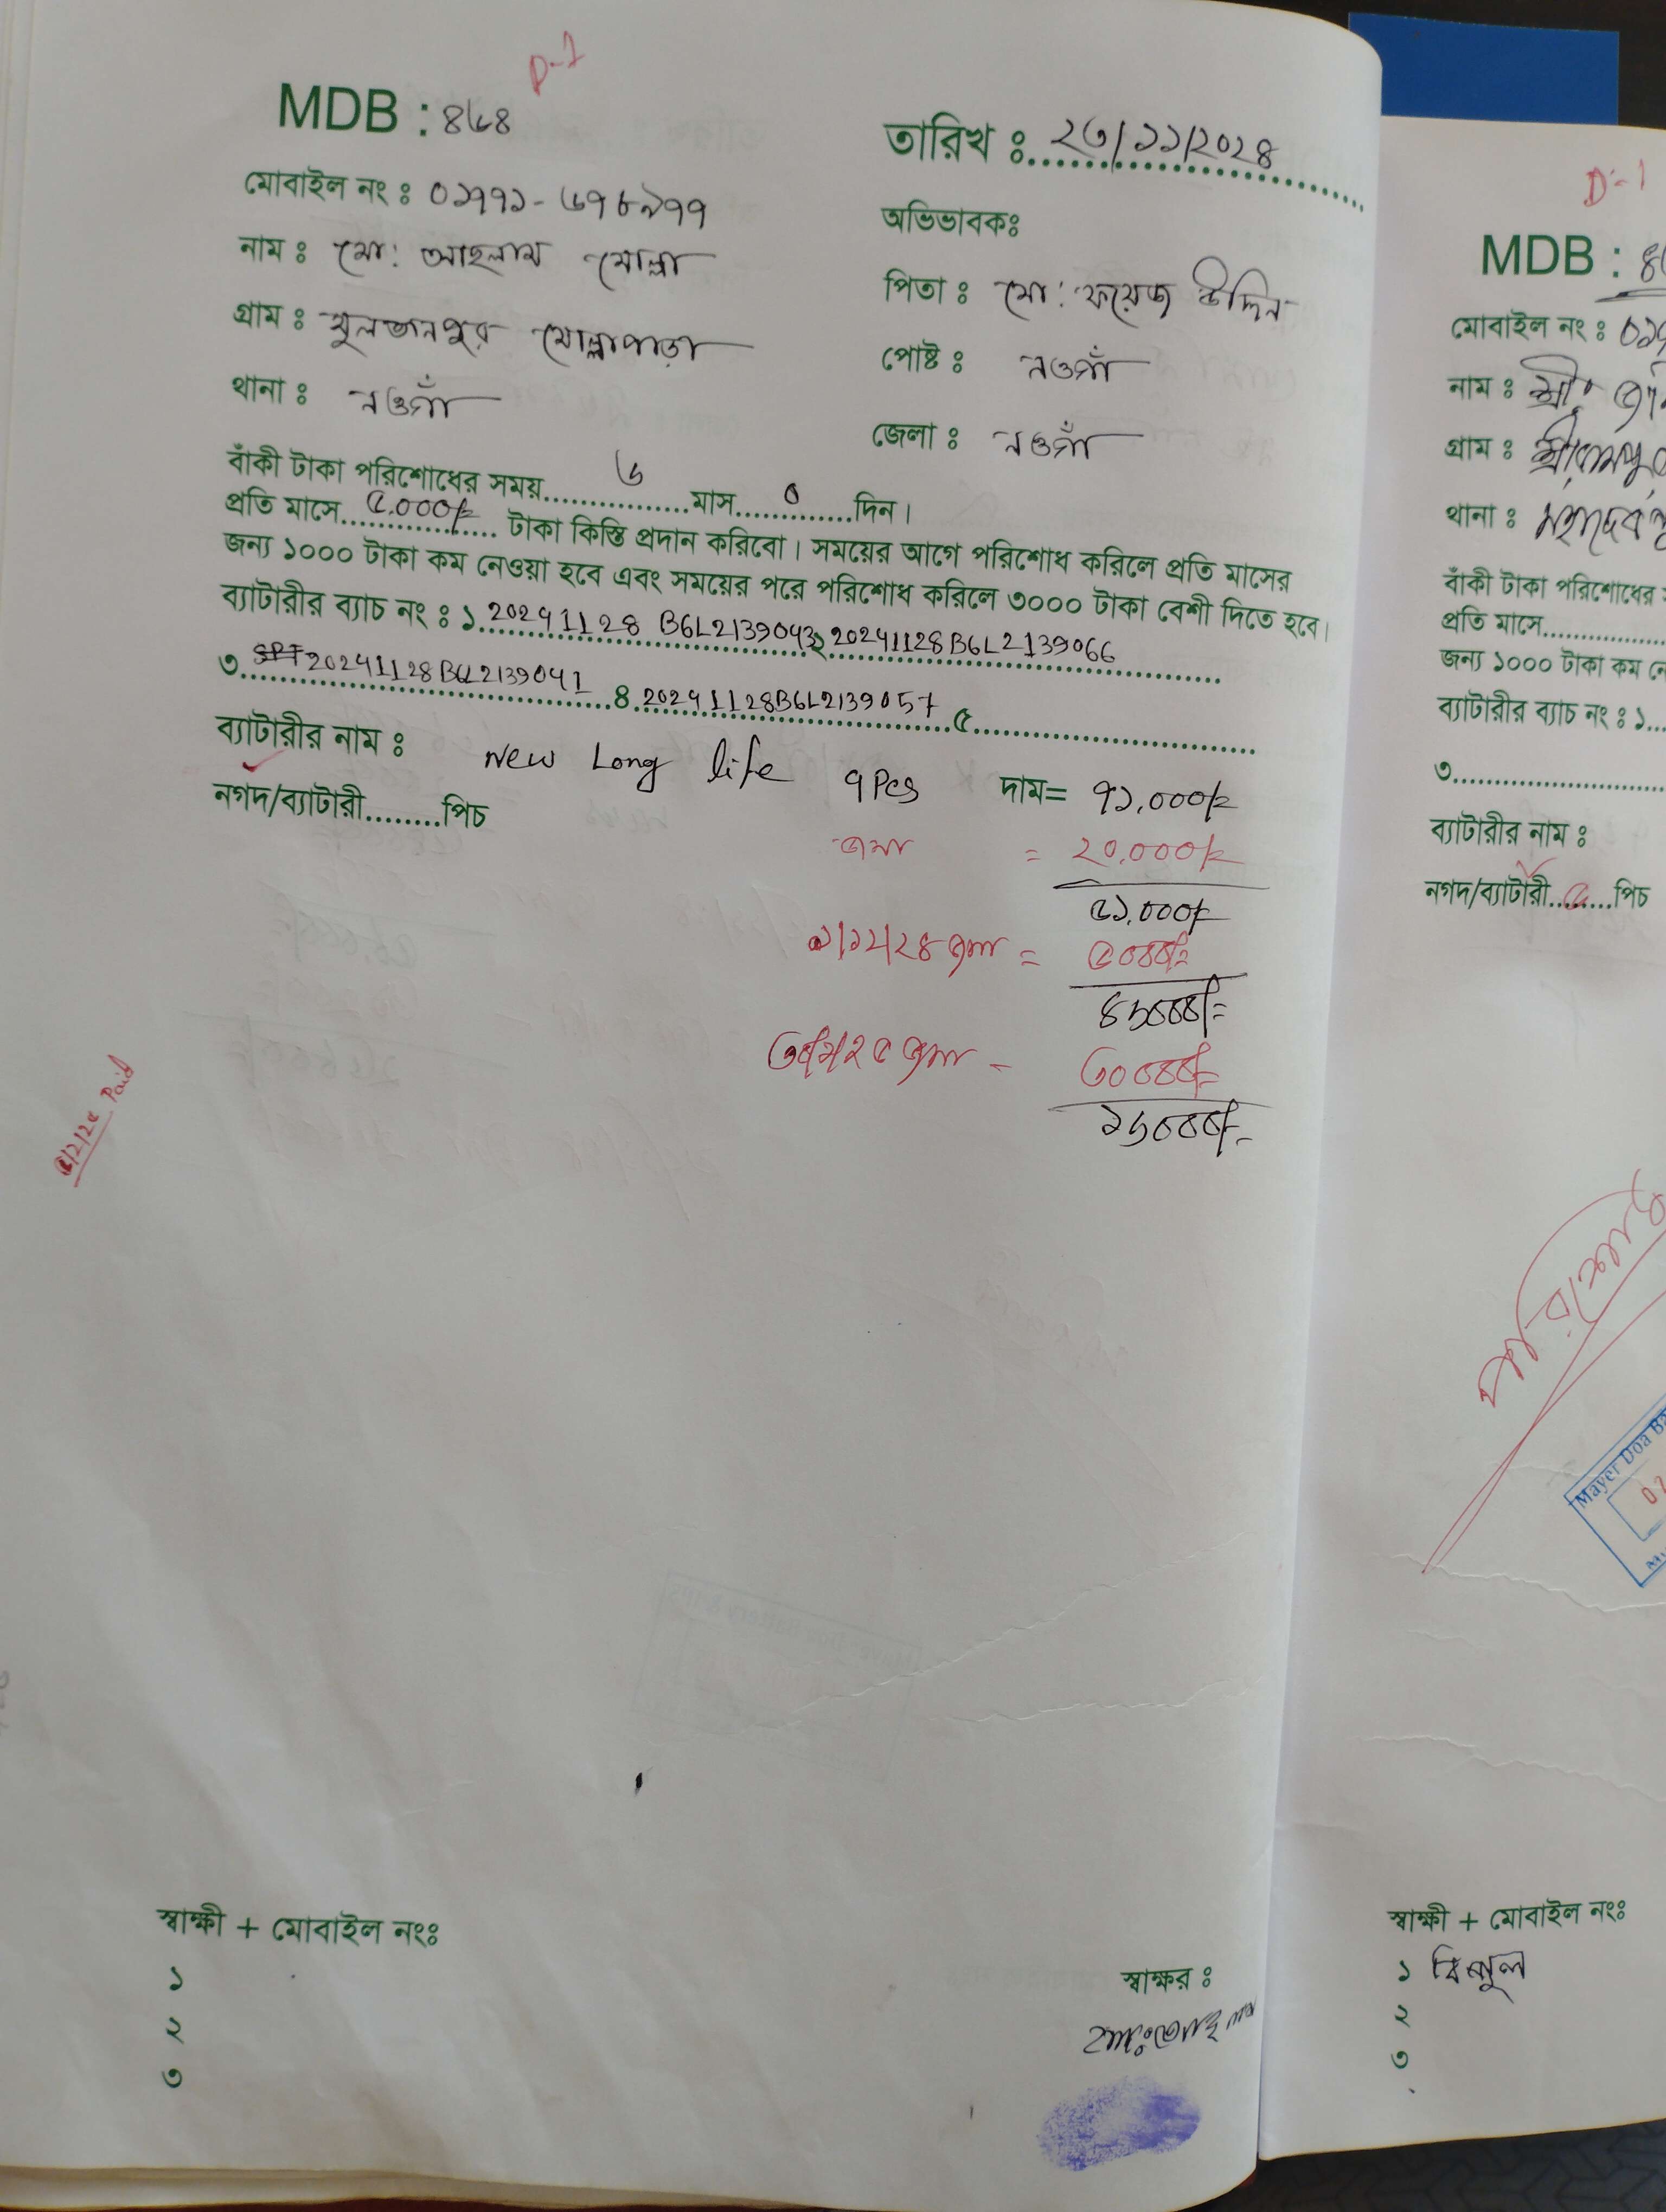 D-1
MDB : ৪৬৪
তারিখ ঃ ২৩/১১/২০২৪
মোবাইল নং ঃ ০১৭৭১-৬৭৮৯৭৭
অভিভাবকঃ
নাম ঃ মো: আছলাম মোল্লা
পিতা ঃ মো: ফয়েজ উদ্দিন
গ্রাম ঃ সুলতানপুর মোল্লাপাড়া
পোষ্ট ঃ নওগাঁ
থানা ঃ নওগাঁ
জেলা ঃ নওগাঁ
বাঁকী টাকা পরিশোধের সময়................৬................মাস......০......দিন।
প্রতি মাসে...৫.০০০/=... টাকা কিস্তি প্রদান করিবো। সময়ের আগে পরিশোধ করিলে প্রতি মাসের
জন্য ১০০০ টাকা কম নেওয়া হবে এবং সময়ের পরে পরিশোধ করিলে ৩০০০ টাকা বেশী দিতে হবে।
ব্যাটারীর ব্যাচ নং ঃ ১. 20241128 B6L2139043 ২ 20241128B6L2139066
৩. 20241128B6L2139041 ৪. 20241128B6L2139057 ৫.
ব্যাটারীর নাম ঃ New Long life ৭Pcs দাম= ৭১,০০০/=
নগদ/ব্যাটারী........পিচ
জমা = ২০,০০০/=
৫১,০০০/=
জমা = ৫০০০/=
৪৬০০০/=
জমা - ৩০০০০/=
১৬০০০/=
৫/২/২৫ Paid
স্বাক্ষী + মোবাইল নংঃ
১
২
৩
স্বাক্ষর ঃ
D-1
MDB : ৪৬
মোবাইল নং ঃ ০১
নাম ঃ শ্রী:
গ্রাম ঃ শ্রীরামপুর
থানা ঃ মহাদেবপু
বাঁকী টাকা পরিশোধের
প্রতি মাসে
জন্য ১০০০ টাকা কম নে
ব্যাটারীর ব্যাচ নং ঃ ১
৩
ব্যাটারীর নাম ঃ
নগদ/ব্যাটারী..৫...পিচ
পরিশোধ
Mayer Doa Ba
স্বাক্ষী + মোবাইল নংঃ
১
২
৩